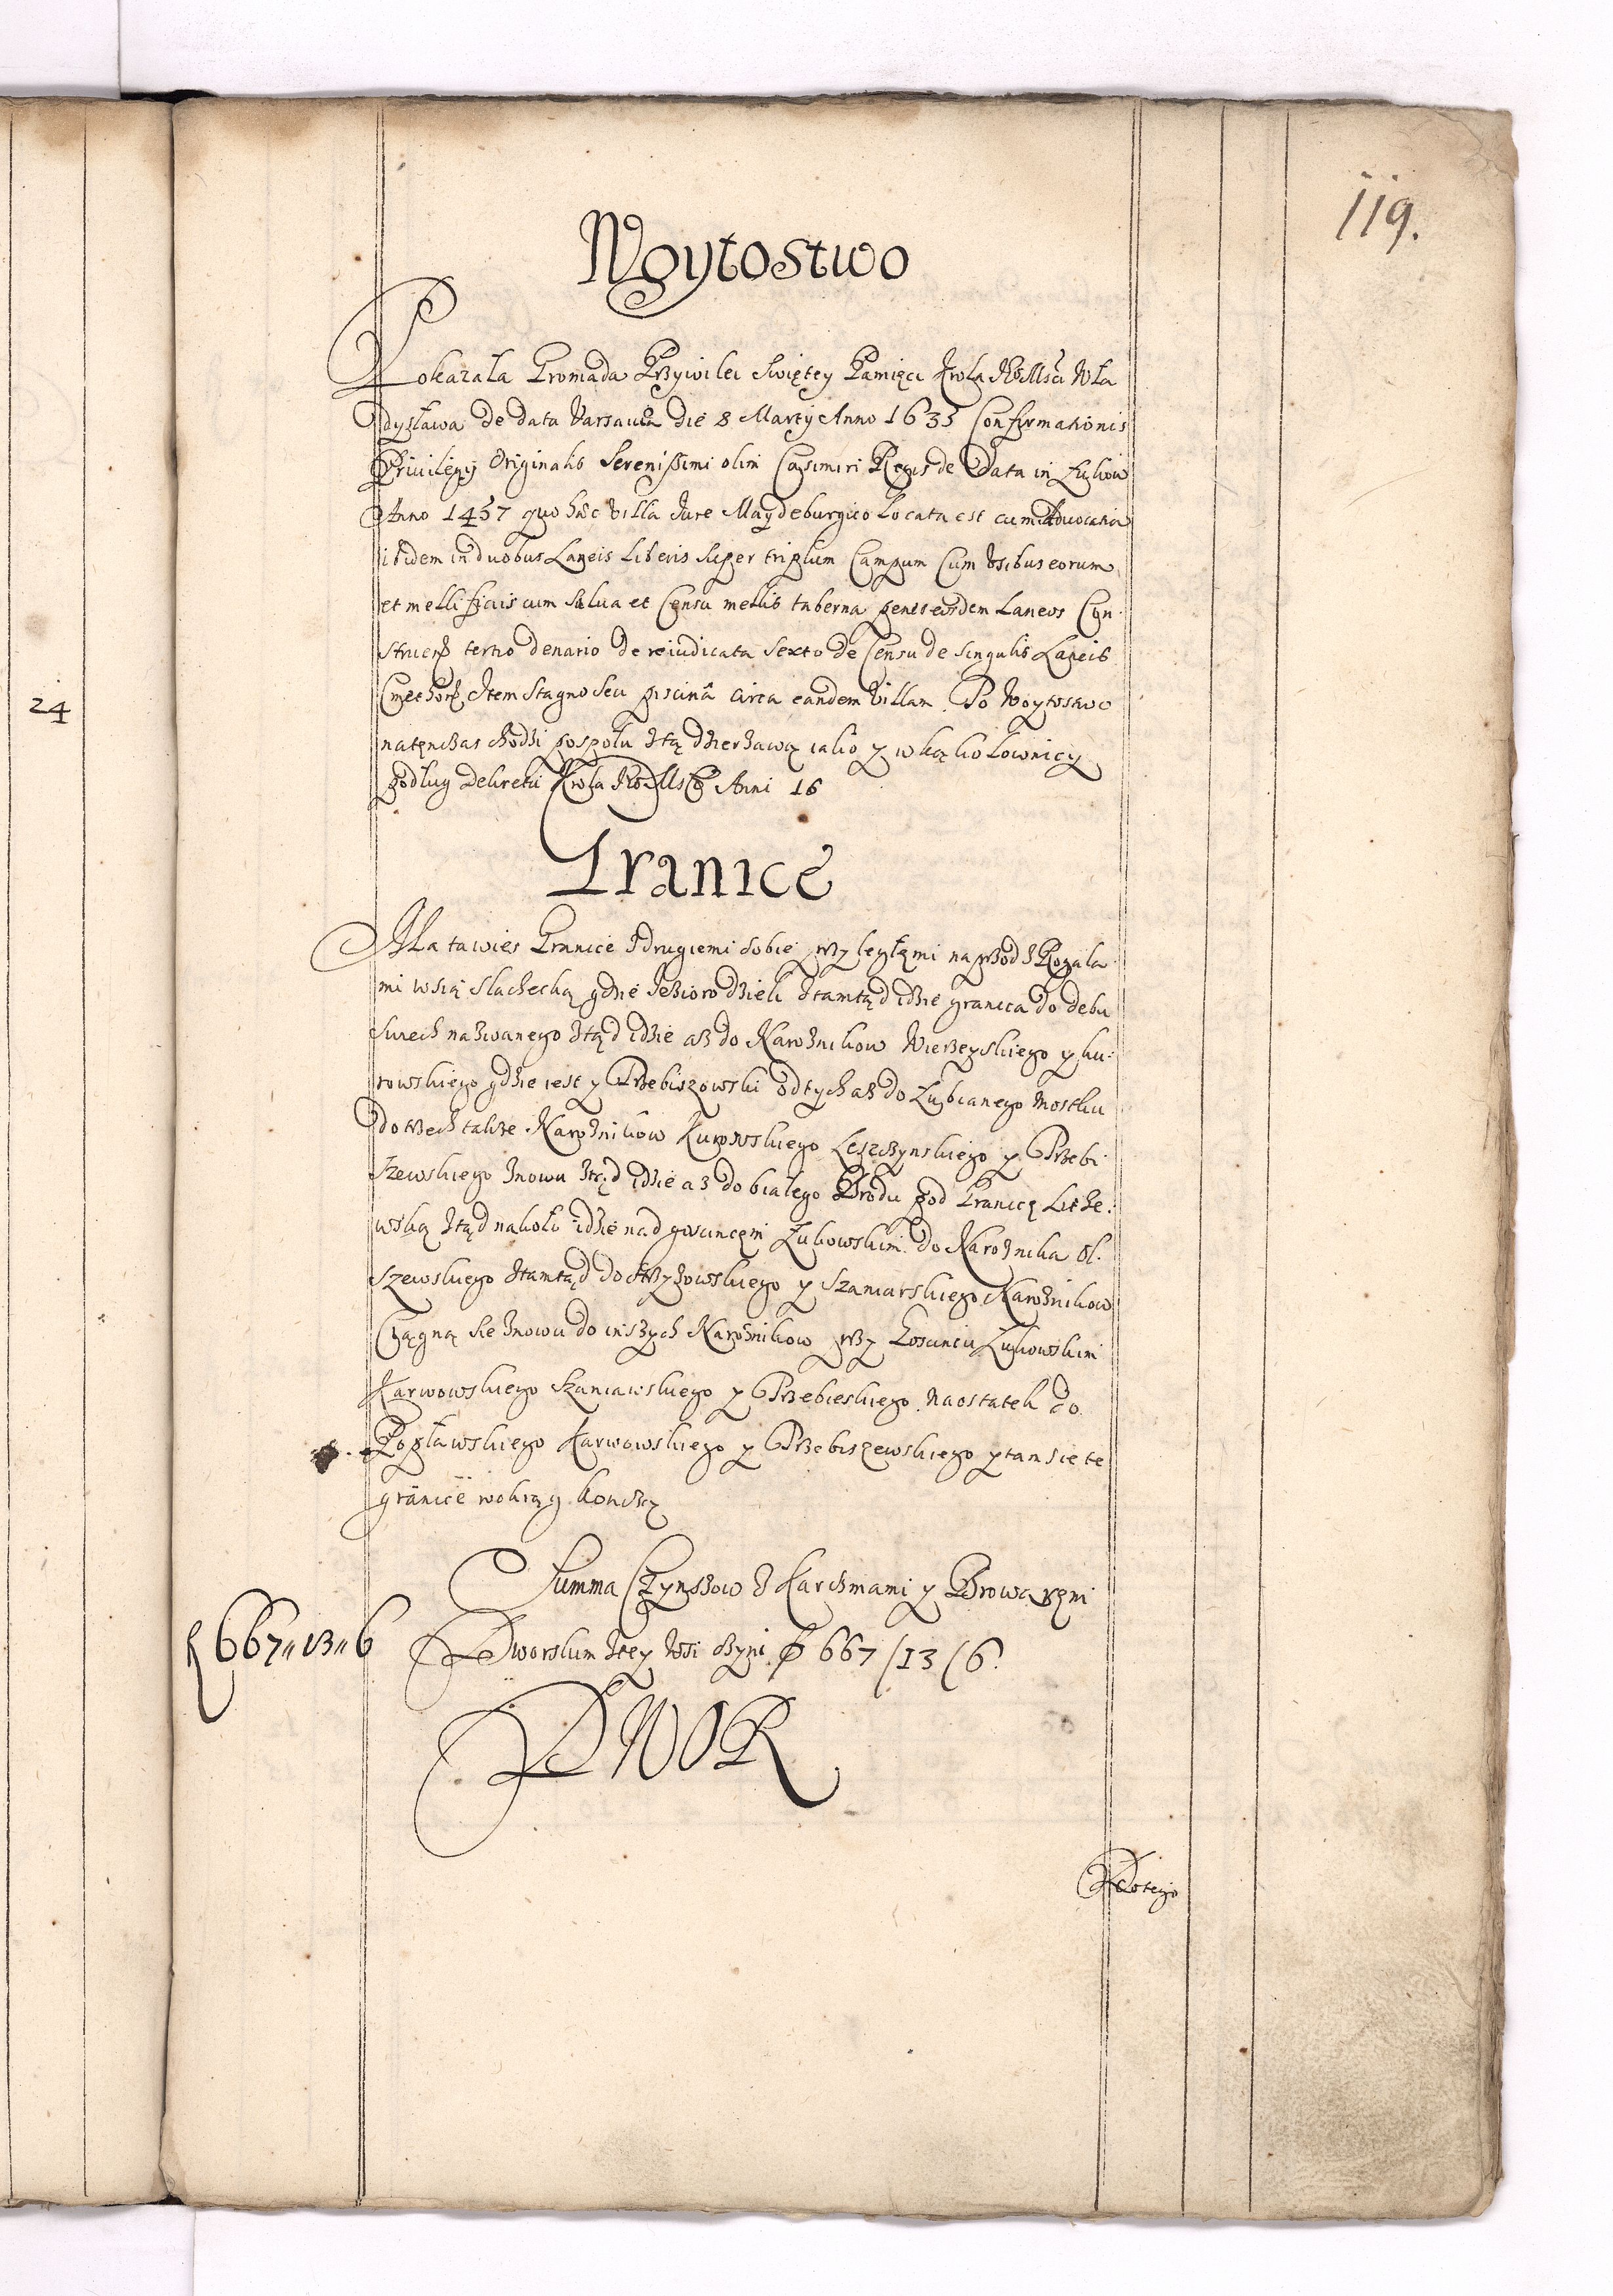 119.
24
Woytostwo
Pokazała Gromada Przywilei Swiętey Pamięci Krola JEo Msci Wła
dysława de data Varsauiæ die 8 Martÿ Anno 1635 Confirmationis
Priuilegÿ Originalis Serenissimi olim Casimiri Regis de Data in Łukow
Anno 1457 quo hæc villa Jure Maydeburgico Locata est cum Aduocatia
ibidem in duobus Laneis Liberis super triplum Campum Cum Vsibus eorum
et mellificiis cum Salua et Censu mellis taberna penes eosdem Laneos Con
struen tertio denario de reiudicata Sexto de Censu de Singulis Laneis
Cmethon Item Stagno Seu piscinâ circa eandem Villam. To Woytostwo
natęnczas chodzi pospołu ztą dzierzawą iako y w kąkolownicy
podług Dekretu Krola JEo Msci Anni 16
Granice
Ma ta wies Granice zdrugiemi sobie przyległęmi naprzod z Rogala
mi wsią Slachecką gdzie Jezioro dzieli ztamtąd idzie granica do debu
Surech nazwanego ztąd idzie asz do Naroznikow Wierzeyskiego y ku:
rowskiego gdzie iest y Przebiszowski odtych asz do Łubianego Mostku
do trzech takze Naroznikow Kurowskiego Leszczynskiego y Przebi
szewskiego znowu ztąd idzie asz do białego Brodu pod Granicę
wską ztąd nakoło idzie nad goscincęm Łukowskim do Naroznika Ol.
szewskiego ztamtąd do Strzyzowskiego y Szaniawskiego Naroznikow
Ciągną sie znowu do inszych Naroznikow przy Goscincu Łukowskim
Karwowskiego Szaniawskiego y Przebieskiego. Naostatek do
Popławskiego Karwowskiego y Przebiszewskiego y tam sie te
granice wokrąg kończą
Summa Czynszow z Karczmami y Browaręm
Dworskim ztey Wsi czyni f 667/13/6.
f 667„13„6
DWOR
Do tego